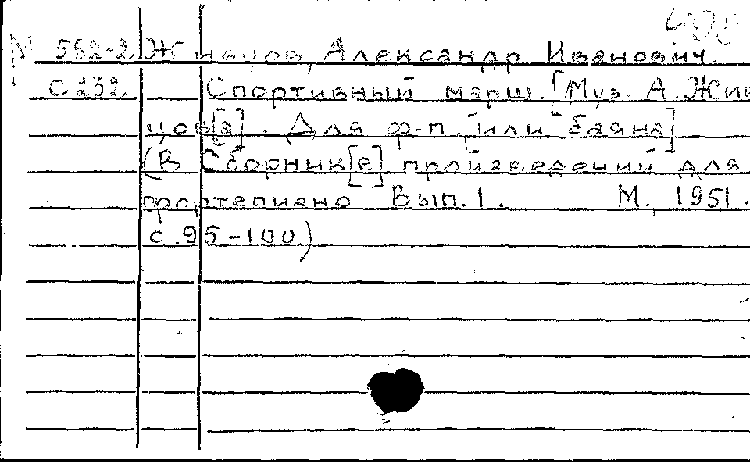 М 562-2 Живцов, Александр Иванович.
С 232. Спортивный марш. [Муз. А. Жив
цов[а]. Для ф-п. [или баяна]
(В Сборник[е] произведений для
фортепиано Вып. 1. М., 1951.
с. 95-100)